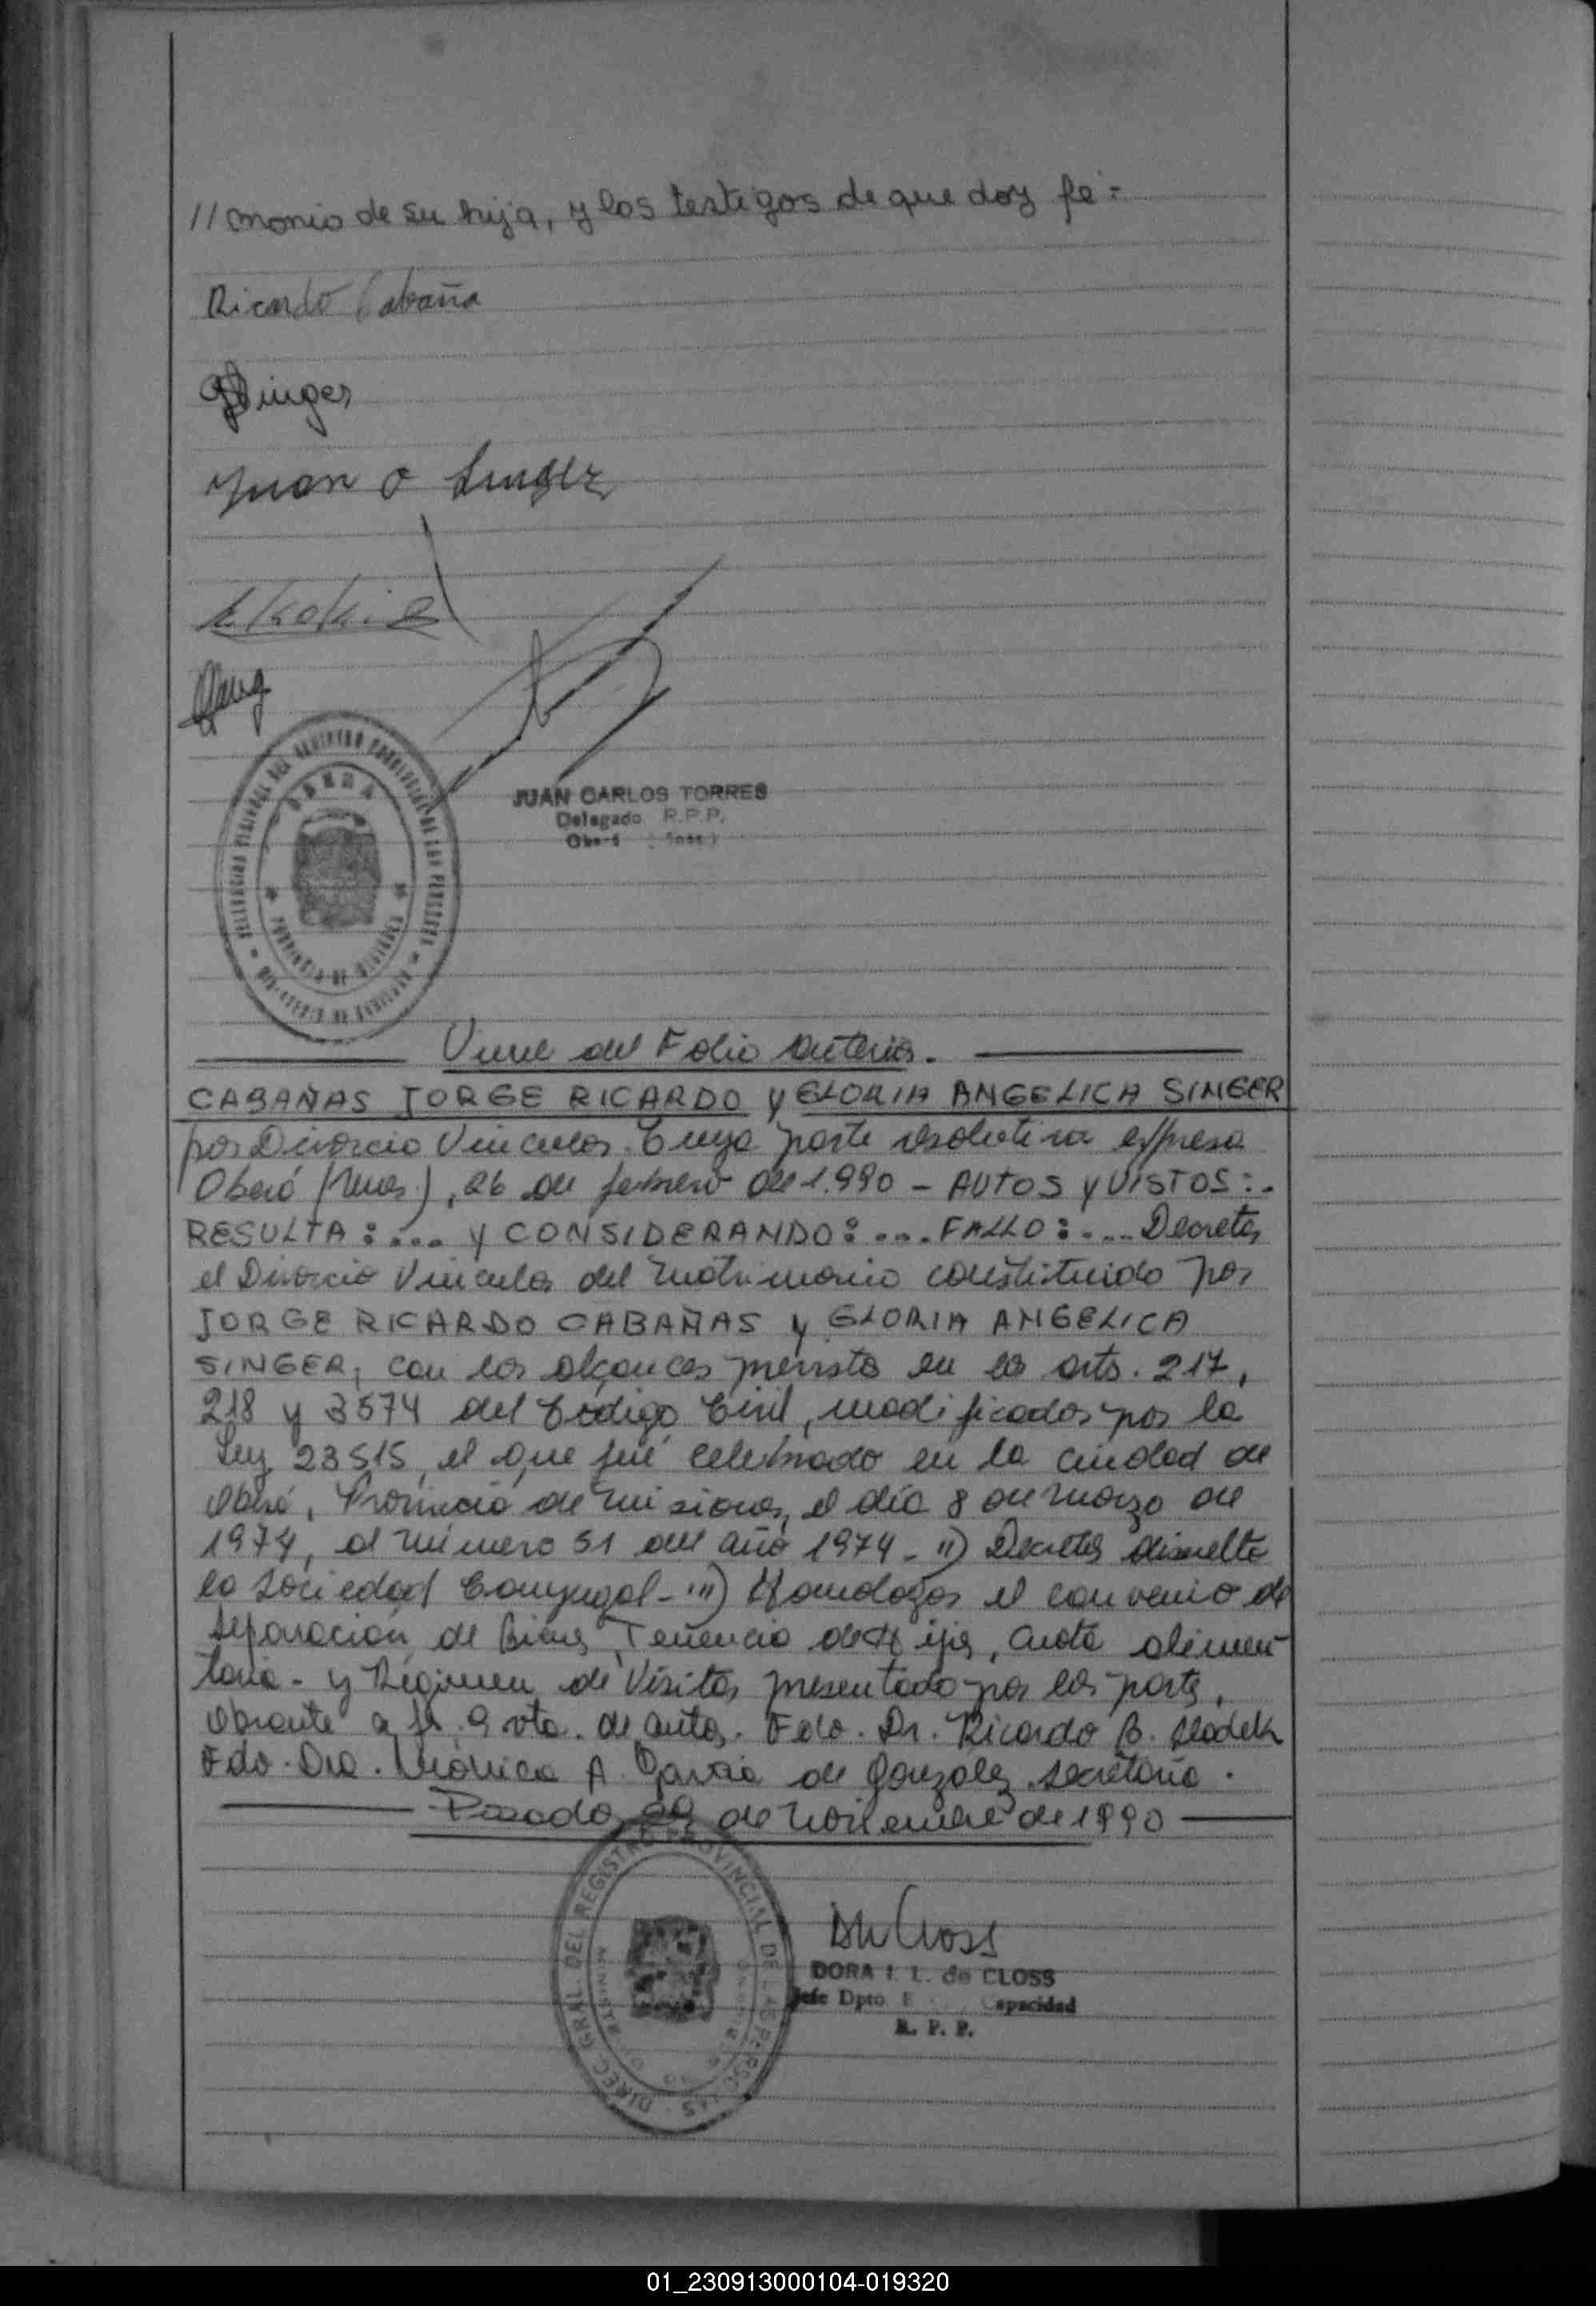 // monio de su hija, y los testigos de que doy fe =
Ricardo Cabaña
GSinger
Juan O Singer
JUAN CARLOS TORRES
Delegado R.P.P.
Viene del Folio Anterior.
CABAÑAS JORGE RICARDO y GLORIA ANGELICA SINGER
por Divorcio Vincular. Cuya parte resolutiva expresa
Oberá (Mnes.), 26 de febrero de 1.990 - AUTOS y VISTOS:.
RESULTA:.... y CONSIDERANDO:.... FALLO:.... Decretar
el Divorcio Vincular del Matrimonio constituido por
JORGE RICARDO CABAÑAS y GLORIA ANGELICA
SINGER, con los alcances previsto en los arts. 217,
218 y 3574 del Código Civil, modificados por la
Ley 23515, el que fué celebrado en la ciudad de
Oberá, Provincia de Misiones, el día 8 de marzo de
1974, al número 51 del año 1974 - II) Decretar disuelta
la Sociedad Conyugal - III) Homologar el convenio de
Separación de Bienes, Tenencia de Hijos, Cuota alimen
taria - y Régimen de Visitas presentado por las partes,
Obrante a fs. 9 vta. de autos. Fdo. Dr. Ricardo B.
Fdo. Dra. Mónica A. García de González Secretaria.
Posadas, de Noviembre de 1990
DIREC. GRAL. DEL REGISTRO PROVINCIAL DE LAS PERSONAS
DORA I. L. de CLOSS
Jefe Dpto. Capacidad
R. P. P.
01_230913000104-019320